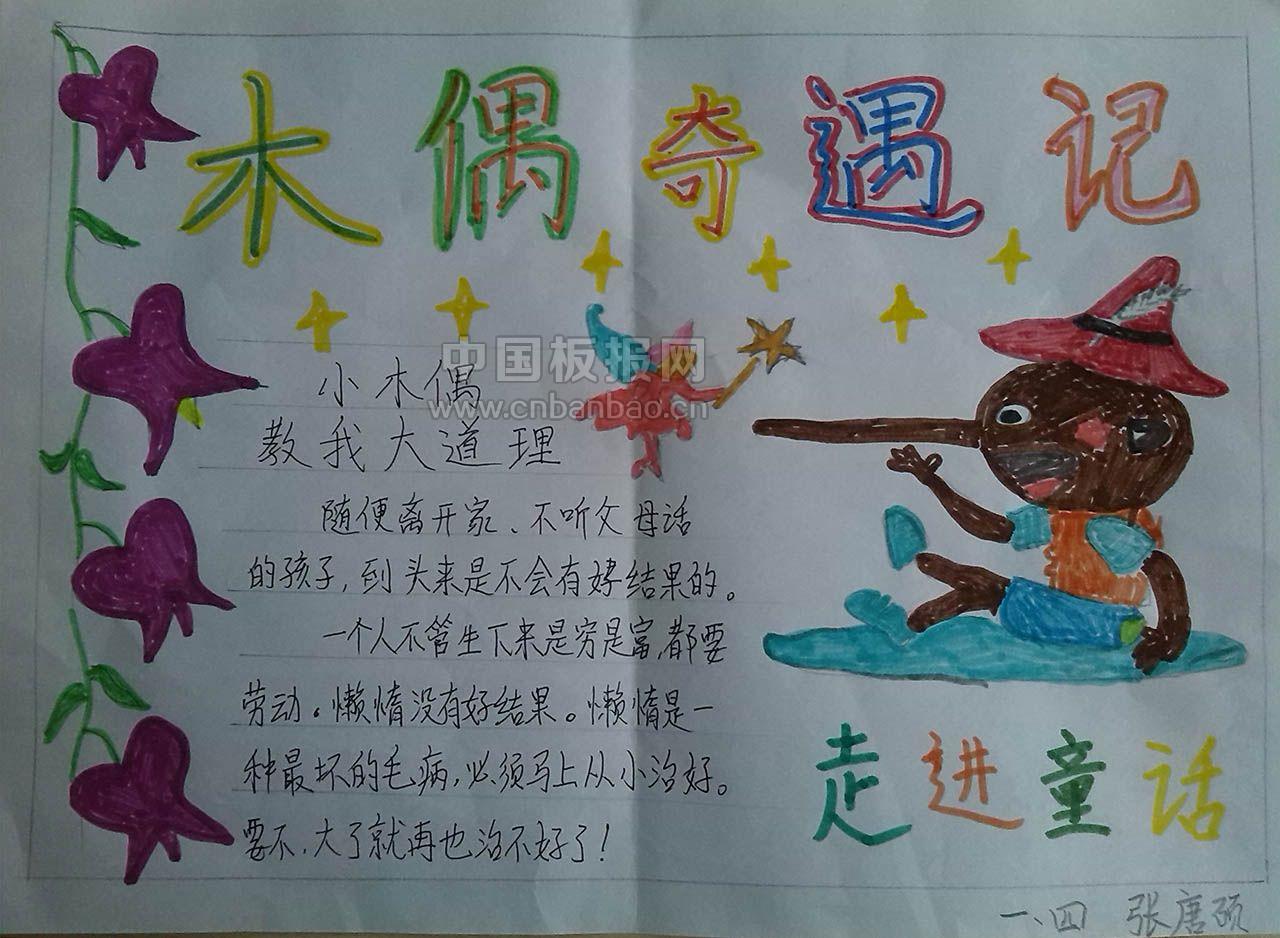 木偶奇遇记
中国板报网
www.cnbanbao.cn
小木偶
教我大道理
随便离开家、不听父母话
的孩子，到头来是不会有好结果的。
一个人不管生下来是穷是富，都要
劳动。懒惰没有好结果。懒惰是一
种最坏的毛病，必须马上从小治好。
要不，大了就再也治不好了！
走进童话
一、四 张唐硕